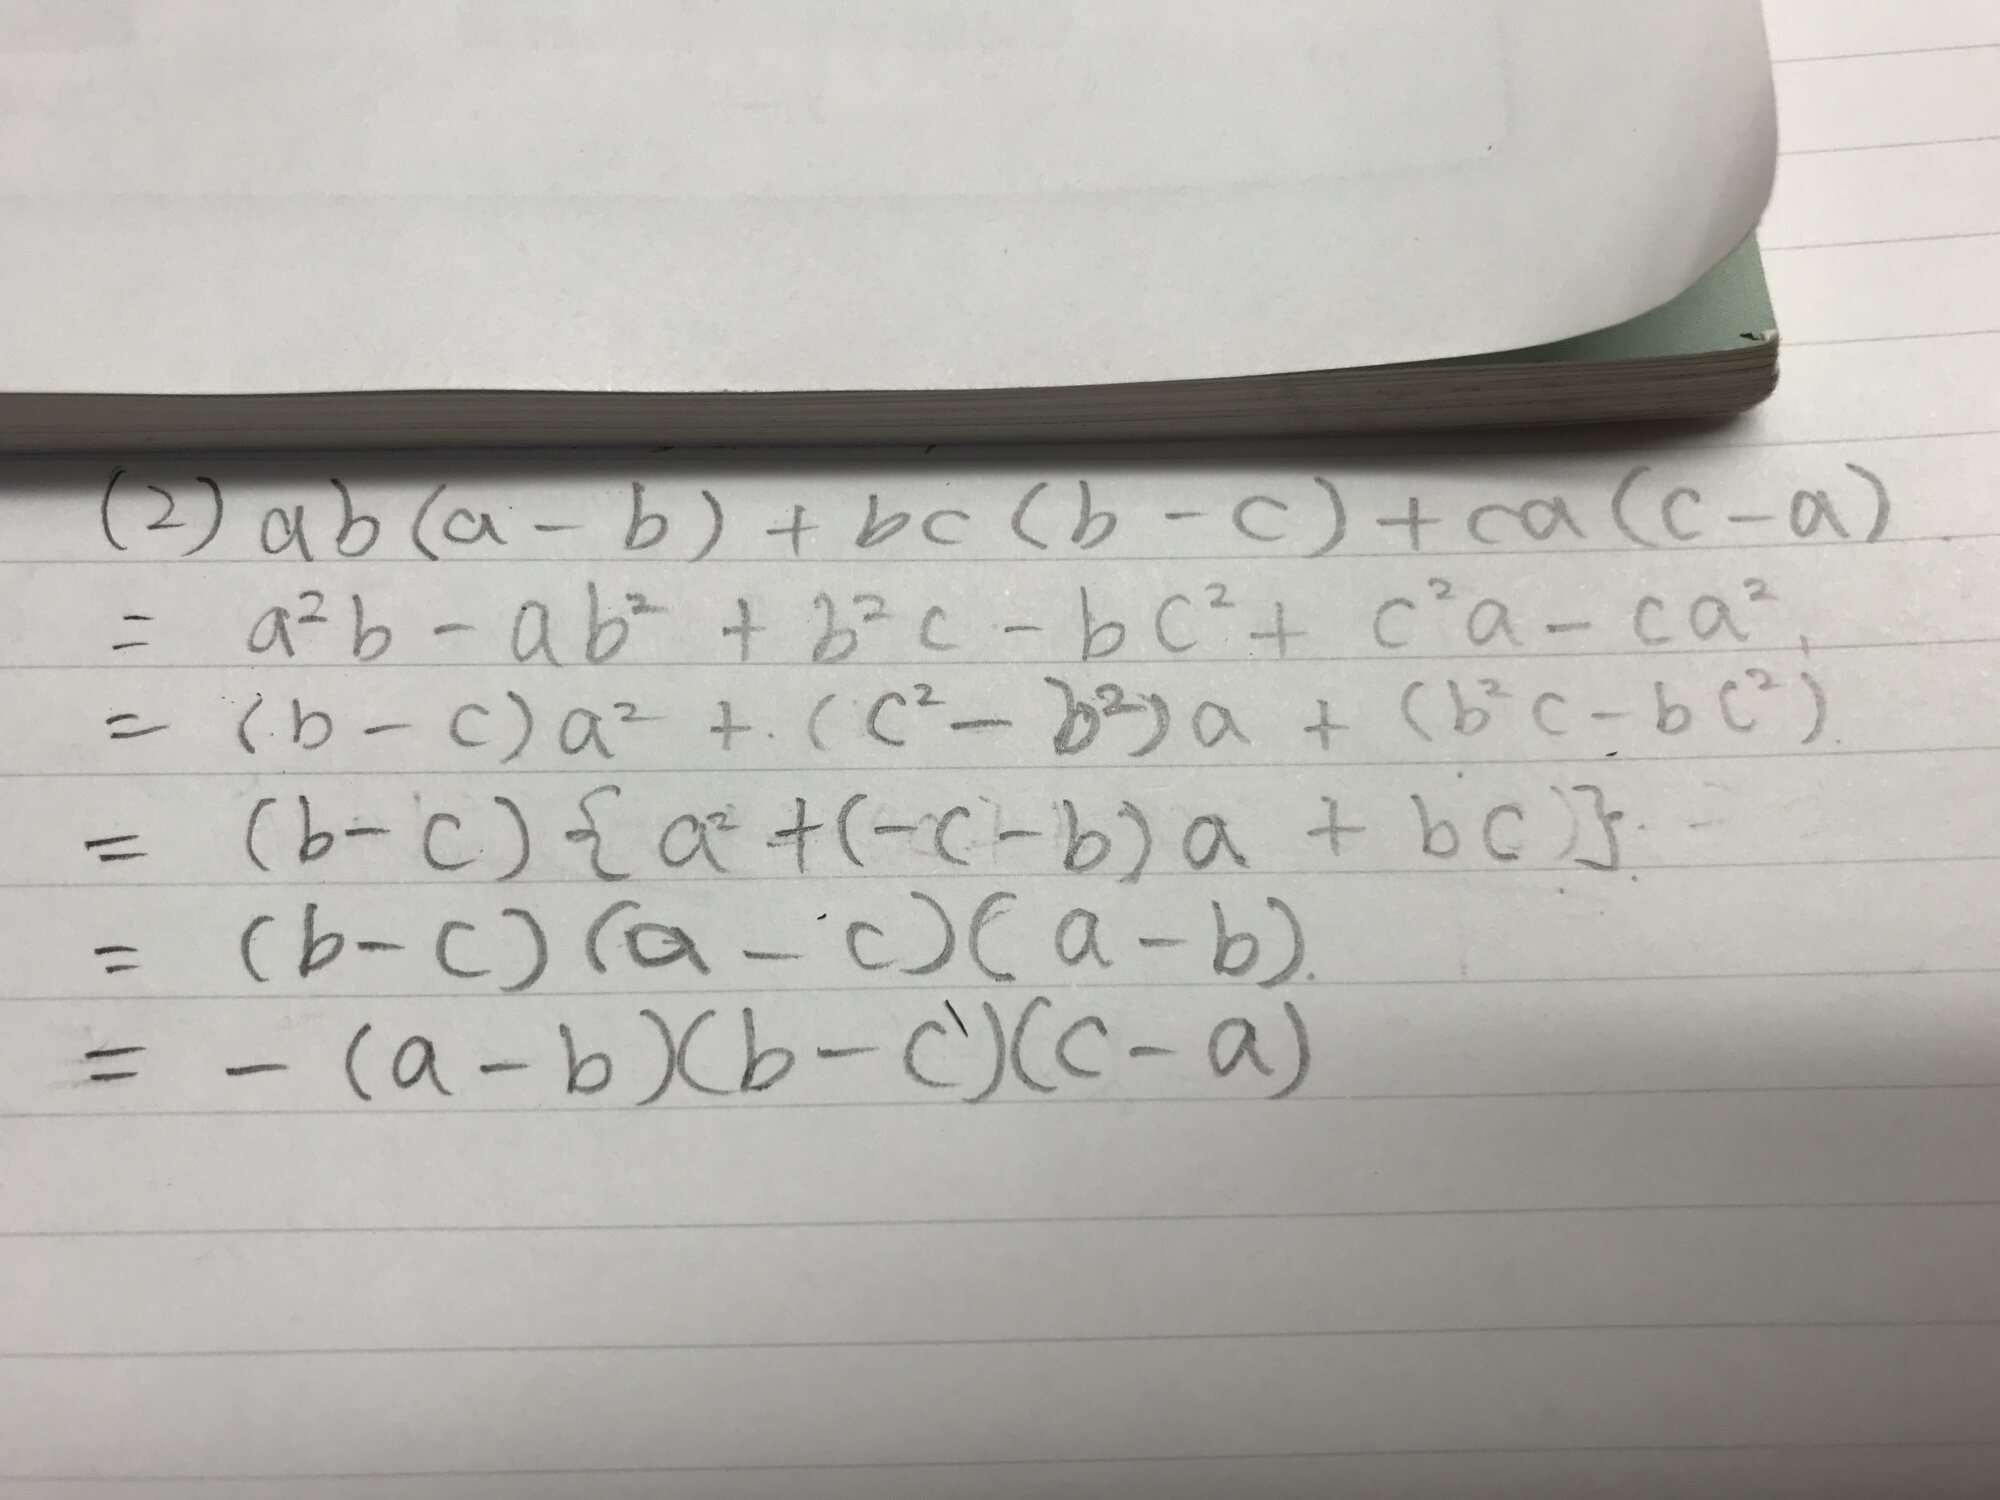 (2) ab(a-b)+bc(b-c)+ca(c-a)
= a²b-ab²+b²c-bc²+c²a-ca²
= (b-c)a²+(c²-b²)a+(b²c-bc²)
= (b-c){a²+(-c-b)a+bc)}
= (b-c)(a-c)(a-b)
= -(a-b)(b-c)(c-a)